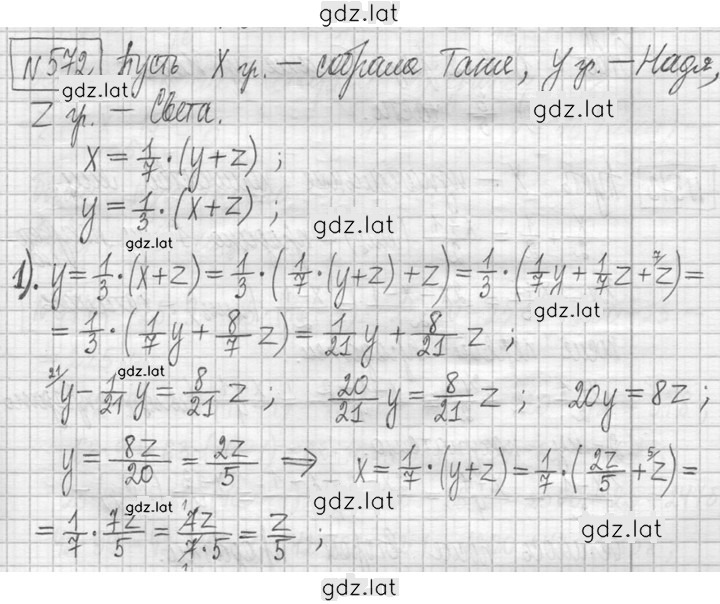 gdz.lat
№572. Пусть X гр. – собрала Таня, У гр. – Надя,
gdz.lat
Z гр. – Света.
gdz.lat
x = 1/7 · (y + z) ;
y = 1/3 · (x + z) ;
gdz.lat
gdz.lat
1). y = 1/3 · (x + z) = 1/3 · (1/7 · (y + z) + z) = 1/3 · (1/7 y + 1/7 z + ⁷⁄z) =
gdz.lat
= 1/3 · (1/7 y + 8/7 z) = 1/21 y + 8/21 z ;
gdz.lat
²¹⁄y – 1/21 y = 8/21 z ; 20/21 y = 8/21 z ; 20y = 8z ;
y = 8z/20 = 2z/5 ⇒ x = 1/7 · (y + z) = 1/7 · (2z/5 + ⁵⁄z) =
gdz.lat
gdz.lat
= 1/7 · 7z/5 = ¹7z/7·5₁ = z/5 ;
gdz.lat
gdz.lat